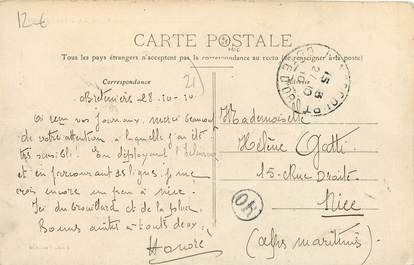 12€
CARTE POSTALE
Tous les pays étrangers n'acceptent pas la correspondance au recto (se renseigner à la poste)
Correspondance
21
28-10-10
ai reçu vos journaux, merci beaucoup
de votre attention à laquelle j'ai été
très sensible! En déployant l'Éclaireur
et en parcourant ses lignes, je me
crois encore un peu à Nice.
Ici du brouillard et de la pluie
Bonnes amitiés à toutes deux.
Honoré
Mademoiselle
Hélène Gatti
15 Rue Droite
Nice
(Alpes maritimes)
CÔTE D'OR